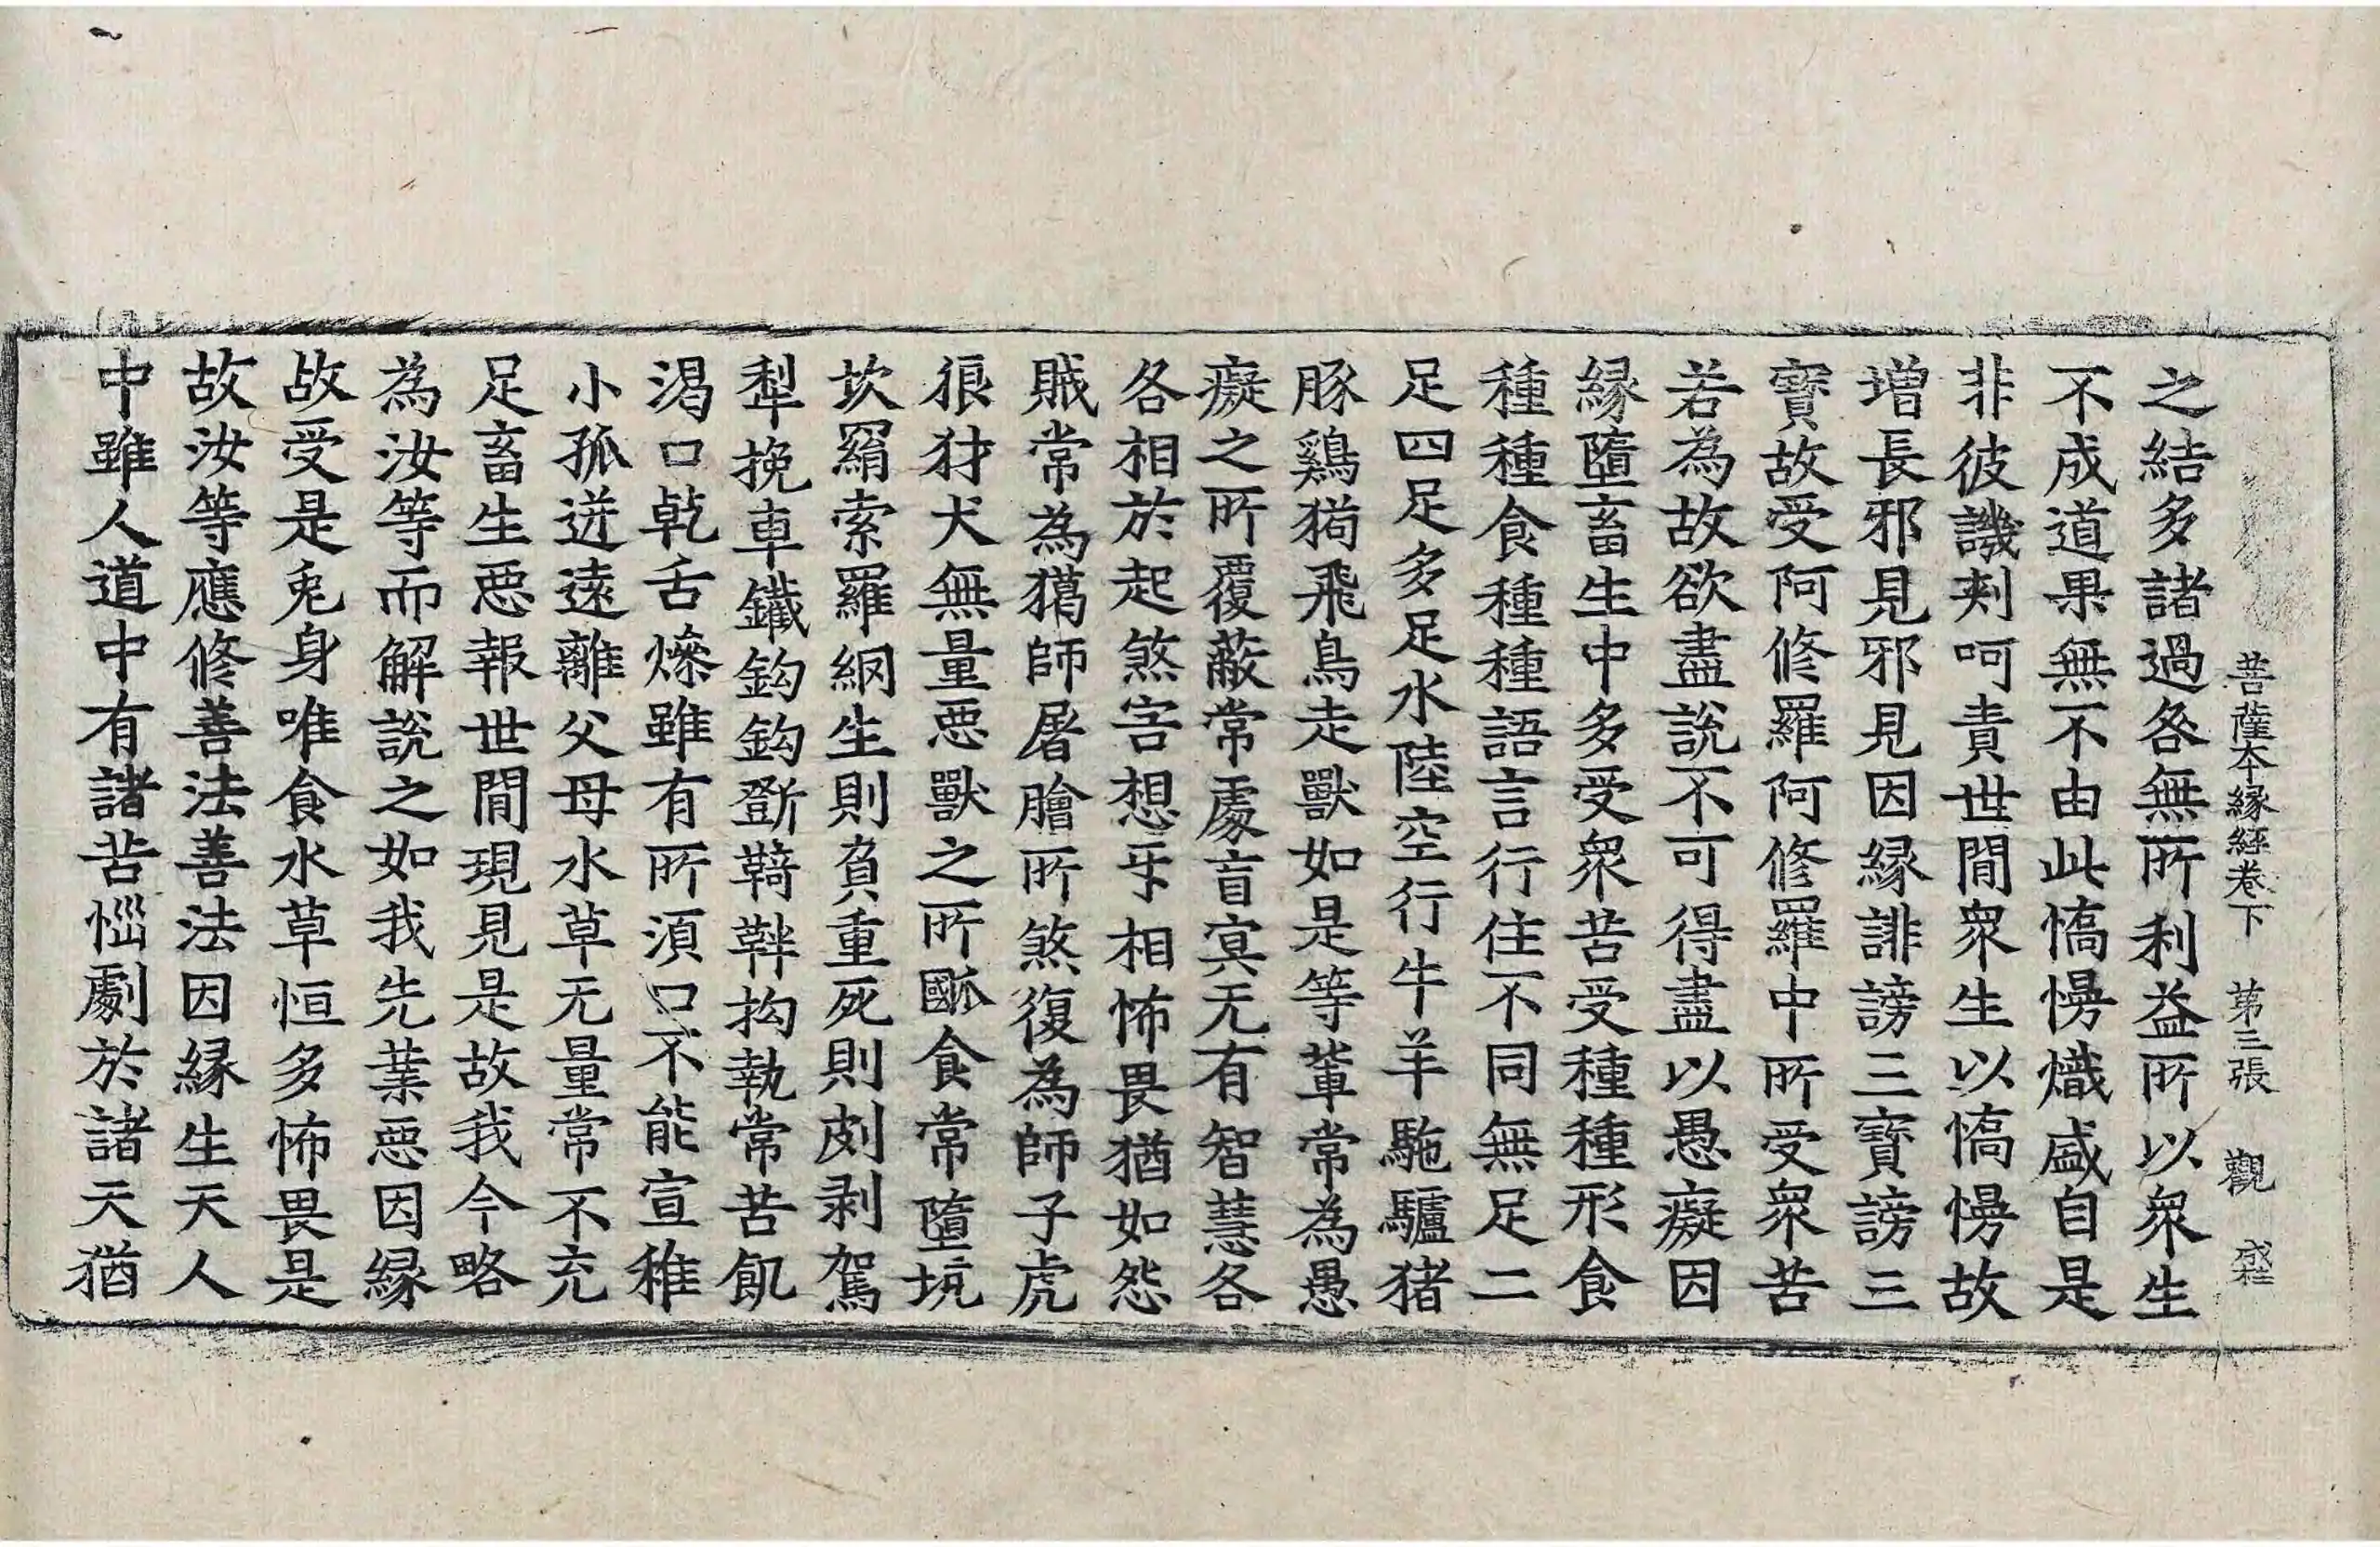 菩薩本緣經卷下 第三張 觀
之結多諸過咎無所利益所以衆生
不成道果無不由此憍慢熾盛自是
非彼譏刾呵責世間衆生以憍慢故
增長邪見邪見因緣誹謗三寶謗三
寶故受阿修羅阿修羅中所受衆苦
若為故欲盡說不可得盡以愚癡因
緣墮畜生中多受衆苦受種種形食
種種食種種語言行住不同無足二
足四足多足水陸空行牛羊駞驢猪
豚鷄狗飛鳥走獸如是等軰常為愚
癡之所覆蔽常處盲冥无有智慧各
各相於起煞害想牙相怖畏猶如怨
賊常為獦師屠膾所煞復為師子虎
狼犲犬無量惡獸之所䶩食常墮坑
坎羂索羅網生則負重死則剥駕
犁挽車鐵鈎鈎斵鞿靽拘執常苦飢
渴口乹舌燥雖有所須口不能宣稚
小孤迸遠離父母水草无量常不充
足畜生惡報世間現見是故我今略
為汝等而解說之如我先業惡因緣
故受是兎身唯食水草恒多怖畏是
故汝等應修善法善法因緣生天人
中雖人道中有諸苦惱劇於諸天猶